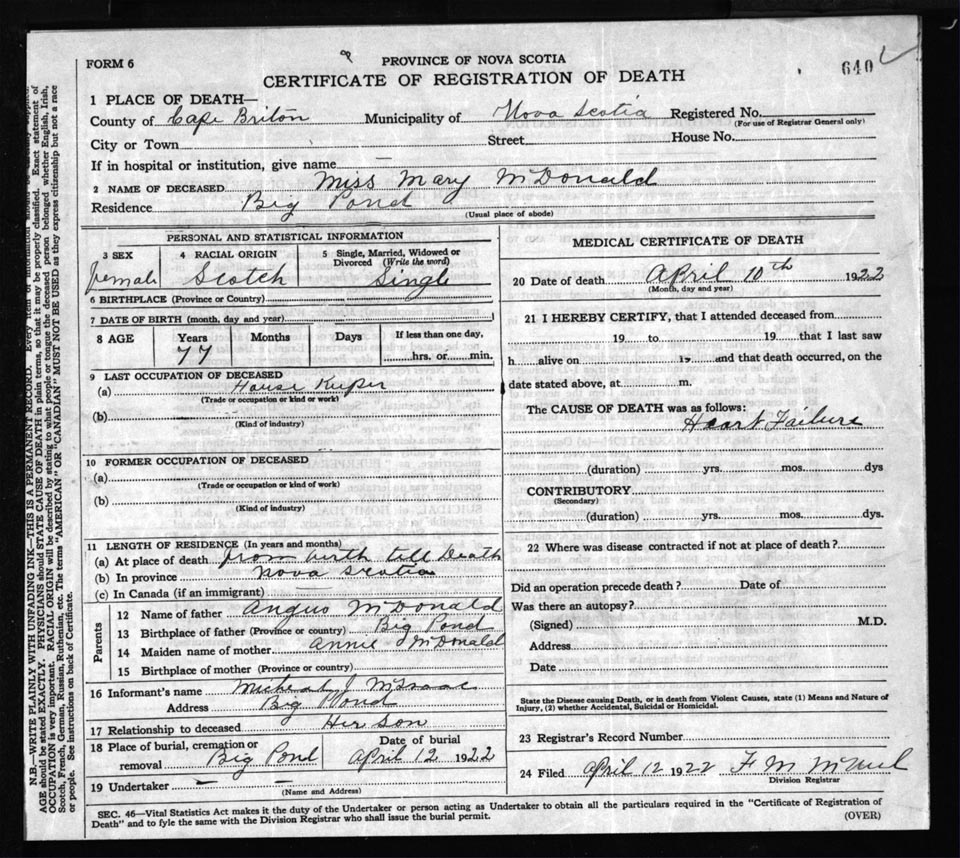 FORM 6
PROVINCE OF NOVA SCOTIA
640
CERTIFICATE OF REGISTRATION OF DEATH
1 PLACE OF DEATH—
County of Cape Briton Municipality of Nova Scotia Registered No.
(For use of Registrar General only)
City or Town Street House No.
If in hospital or institution, give name —
2 NAME OF DECEASED Miss Mary McDonald
Residence Big Pond
(Usual place of abode)
PERSONAL AND STATISTICAL INFORMATION
3 SEX 4 RACIAL ORIGIN 5 Single, Married, Widowed or Divorced (Write the word)
female Scotch Single
6 BIRTHPLACE (Province or Country)
7 DATE OF BIRTH (month, day and year)
8 AGE Years Months Days If less than one day,
77 hrs. or min.
9 LAST OCCUPATION OF DECEASED
(a) House Keeper
(Trade or occupation or kind or work)
(b)
(Kind of industry)
10 FORMER OCCUPATION OF DECEASED
(a)
(Trade or occupation or kind of work)
(b)
(Kind of industry)
11 LENGTH OF RESIDENCE (In years and months)
(a) At place of death from birth till Death
(b) In province Nova Scotia
(c) In Canada (if an immigrant)
Parents
12 Name of father Angus McDonald
13 Birthplace of father (Province or country) Big Pond
14 Maiden name of mother Annie McDonald
15 Birthplace of mother (Province or country)
16 Informant's name J McIsaac
Address Big Pond
17 Relationship to deceased Her Son
18 Place of burial, cremation or removal Big Pond Date of burial April 12 1922
19 Undertaker — —
(Name and Address)
MEDICAL CERTIFICATE OF DEATH
20 Date of death April 10th 1922
(Month, day and year)
21 I HEREBY CERTIFY, that I attended deceased from
19 to 19 that I last saw
h alive on 19 and that death occurred, on the
date stated above, at m.
The CAUSE OF DEATH was as follows:
Heart Failure
(duration) yrs. mos. dys
CONTRIBUTORY
(Secondary)
(duration) yrs. mos. dys.
22 Where was disease contracted if not at place of death?
Did an operation precede death? Date of
Was there an autopsy?
(Signed) M.D.
Address
Date
State the Disease causing Death, or in death from Violent Causes, state (1) Means and Nature of
Injury, (2) whether Accidental, Suicidal or Homicidal.
23 Registrar's Record Number
24 Filed April 12 1922 F M
Division Registrar
SEC. 46—Vital Statistics Act makes it the duty of the Undertaker or person acting as Undertaker to obtain all the particulars required in the "Certificate of Registration of
Death" and to fyle the same with the Division Registrar who shall issue the burial permit.
(OVER)
N.B.—WRITE PLAINLY WITH UNFADING INK—THIS IS A PERMANENT RECORD. Every item of information should be
AGE should be stated EXACTLY. PHYSICIANS should STATE CAUSE OF DEATH in plain terms, so that it may be properly classified. Exact statement of
OCCUPATION is very important. RACIAL ORIGIN will be described by stating to what people or tongue the deceased person belonged whether English, Irish,
Scotch, French, German, Russian, Ruthenian, etc. The terms "AMERICAN" OR "CANADIAN" MUST NOT BE USED as they express citizenship but not a race
or people. See instructions on back of Certificate.